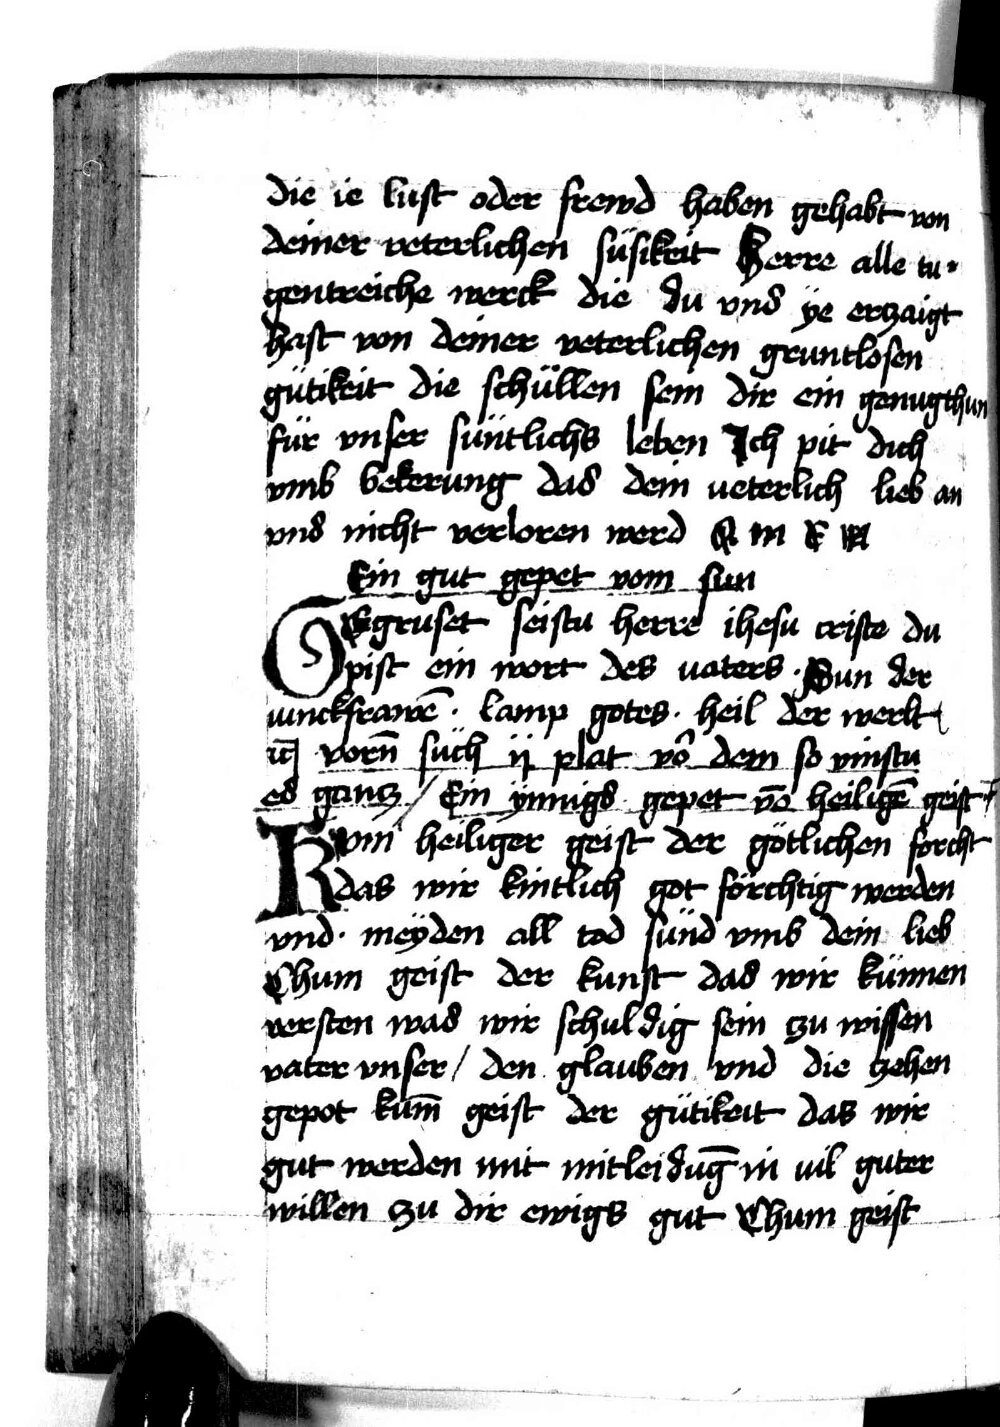 die ie lust oder frewd haben gehabt von
deiner veterlichen süsikeit Herre alle tu-
gentreiche werck die du vns ÿe erczaigt
hast von deiner veterlichen gruntlosen
gütikeit die schüllen sein dir ein genugthun
für vnser süntlichs leben Ich pit dich
vmb bekerung das dein ueterlich lieb an
vns nicht verloren werd A M E N
Ein gut gepet vom sun
GEgruset seistu herre ihesu criste du
pist ein wort des uaters · Sun der
iunckfrawē · lamp gotes · heil der werlt
vorñ süch ij plat vō dem so vinstu
es gancz / Ein ynnigs gepet võ heiligē geist
Kvm heiliger geist der götlichen forcht
das wir kintlich got förchtig werden
vnd · meyden all tod sünd vmb dein lieb
Chum geist der kunst das wir künnen
versten was wir schuldig sein zu wissen
vater vnser / den glauben vnd die zehen
gepot kum̄ geist der gütikeit das wir
gut werden mit mitleidūg in uil guter
willen zu dir ewigs gut Chum geist